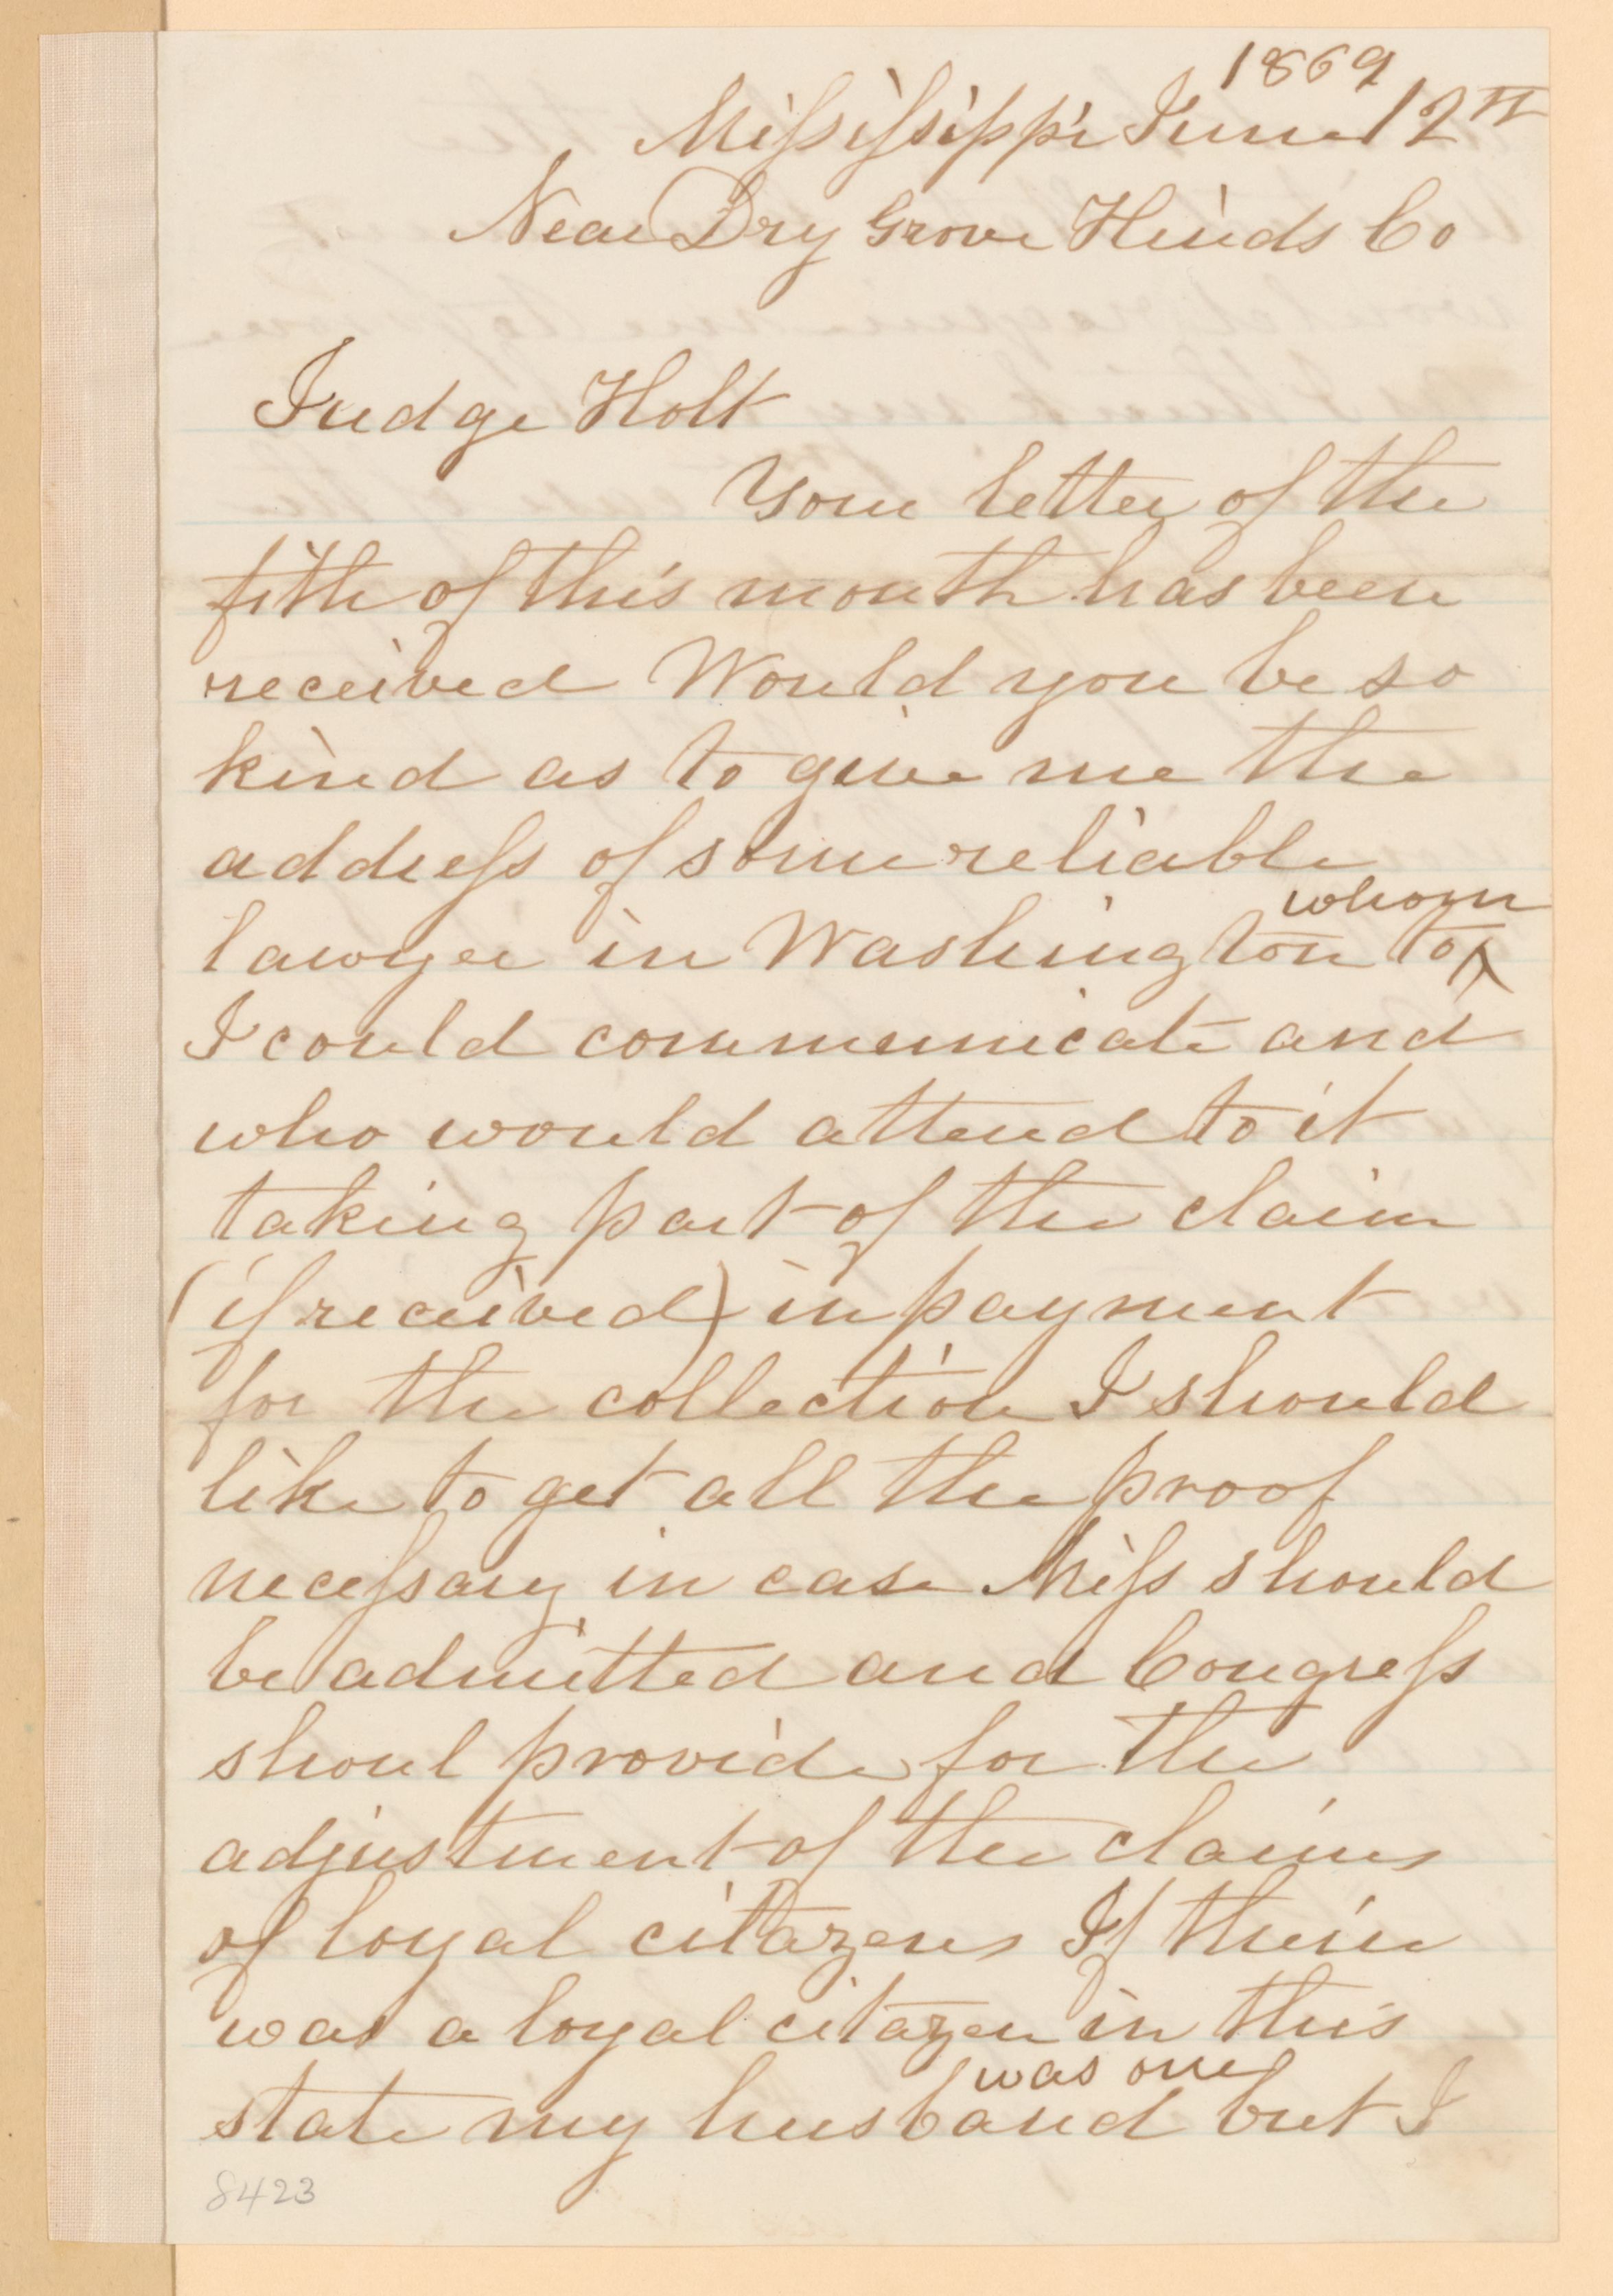 1869
Mississippi June 12th
Near Dry Grove Hinds Co
Judge Holt
Your letter of the
fith of this month has been
received Would you be so
kind as to give me the
address of some reliable
whom
lawyer in Washington to ^
I could communicate and
who would attend to it
taking part of the claim
(if received) in payment
for the collection I should
like to get all the proof
necessary in case Miss should
be admitted and Congress
shoul provide for the
adjustment of the claims
of loyal citazens If their
was a loyal citazen in this
was one
state my husband but I
8423